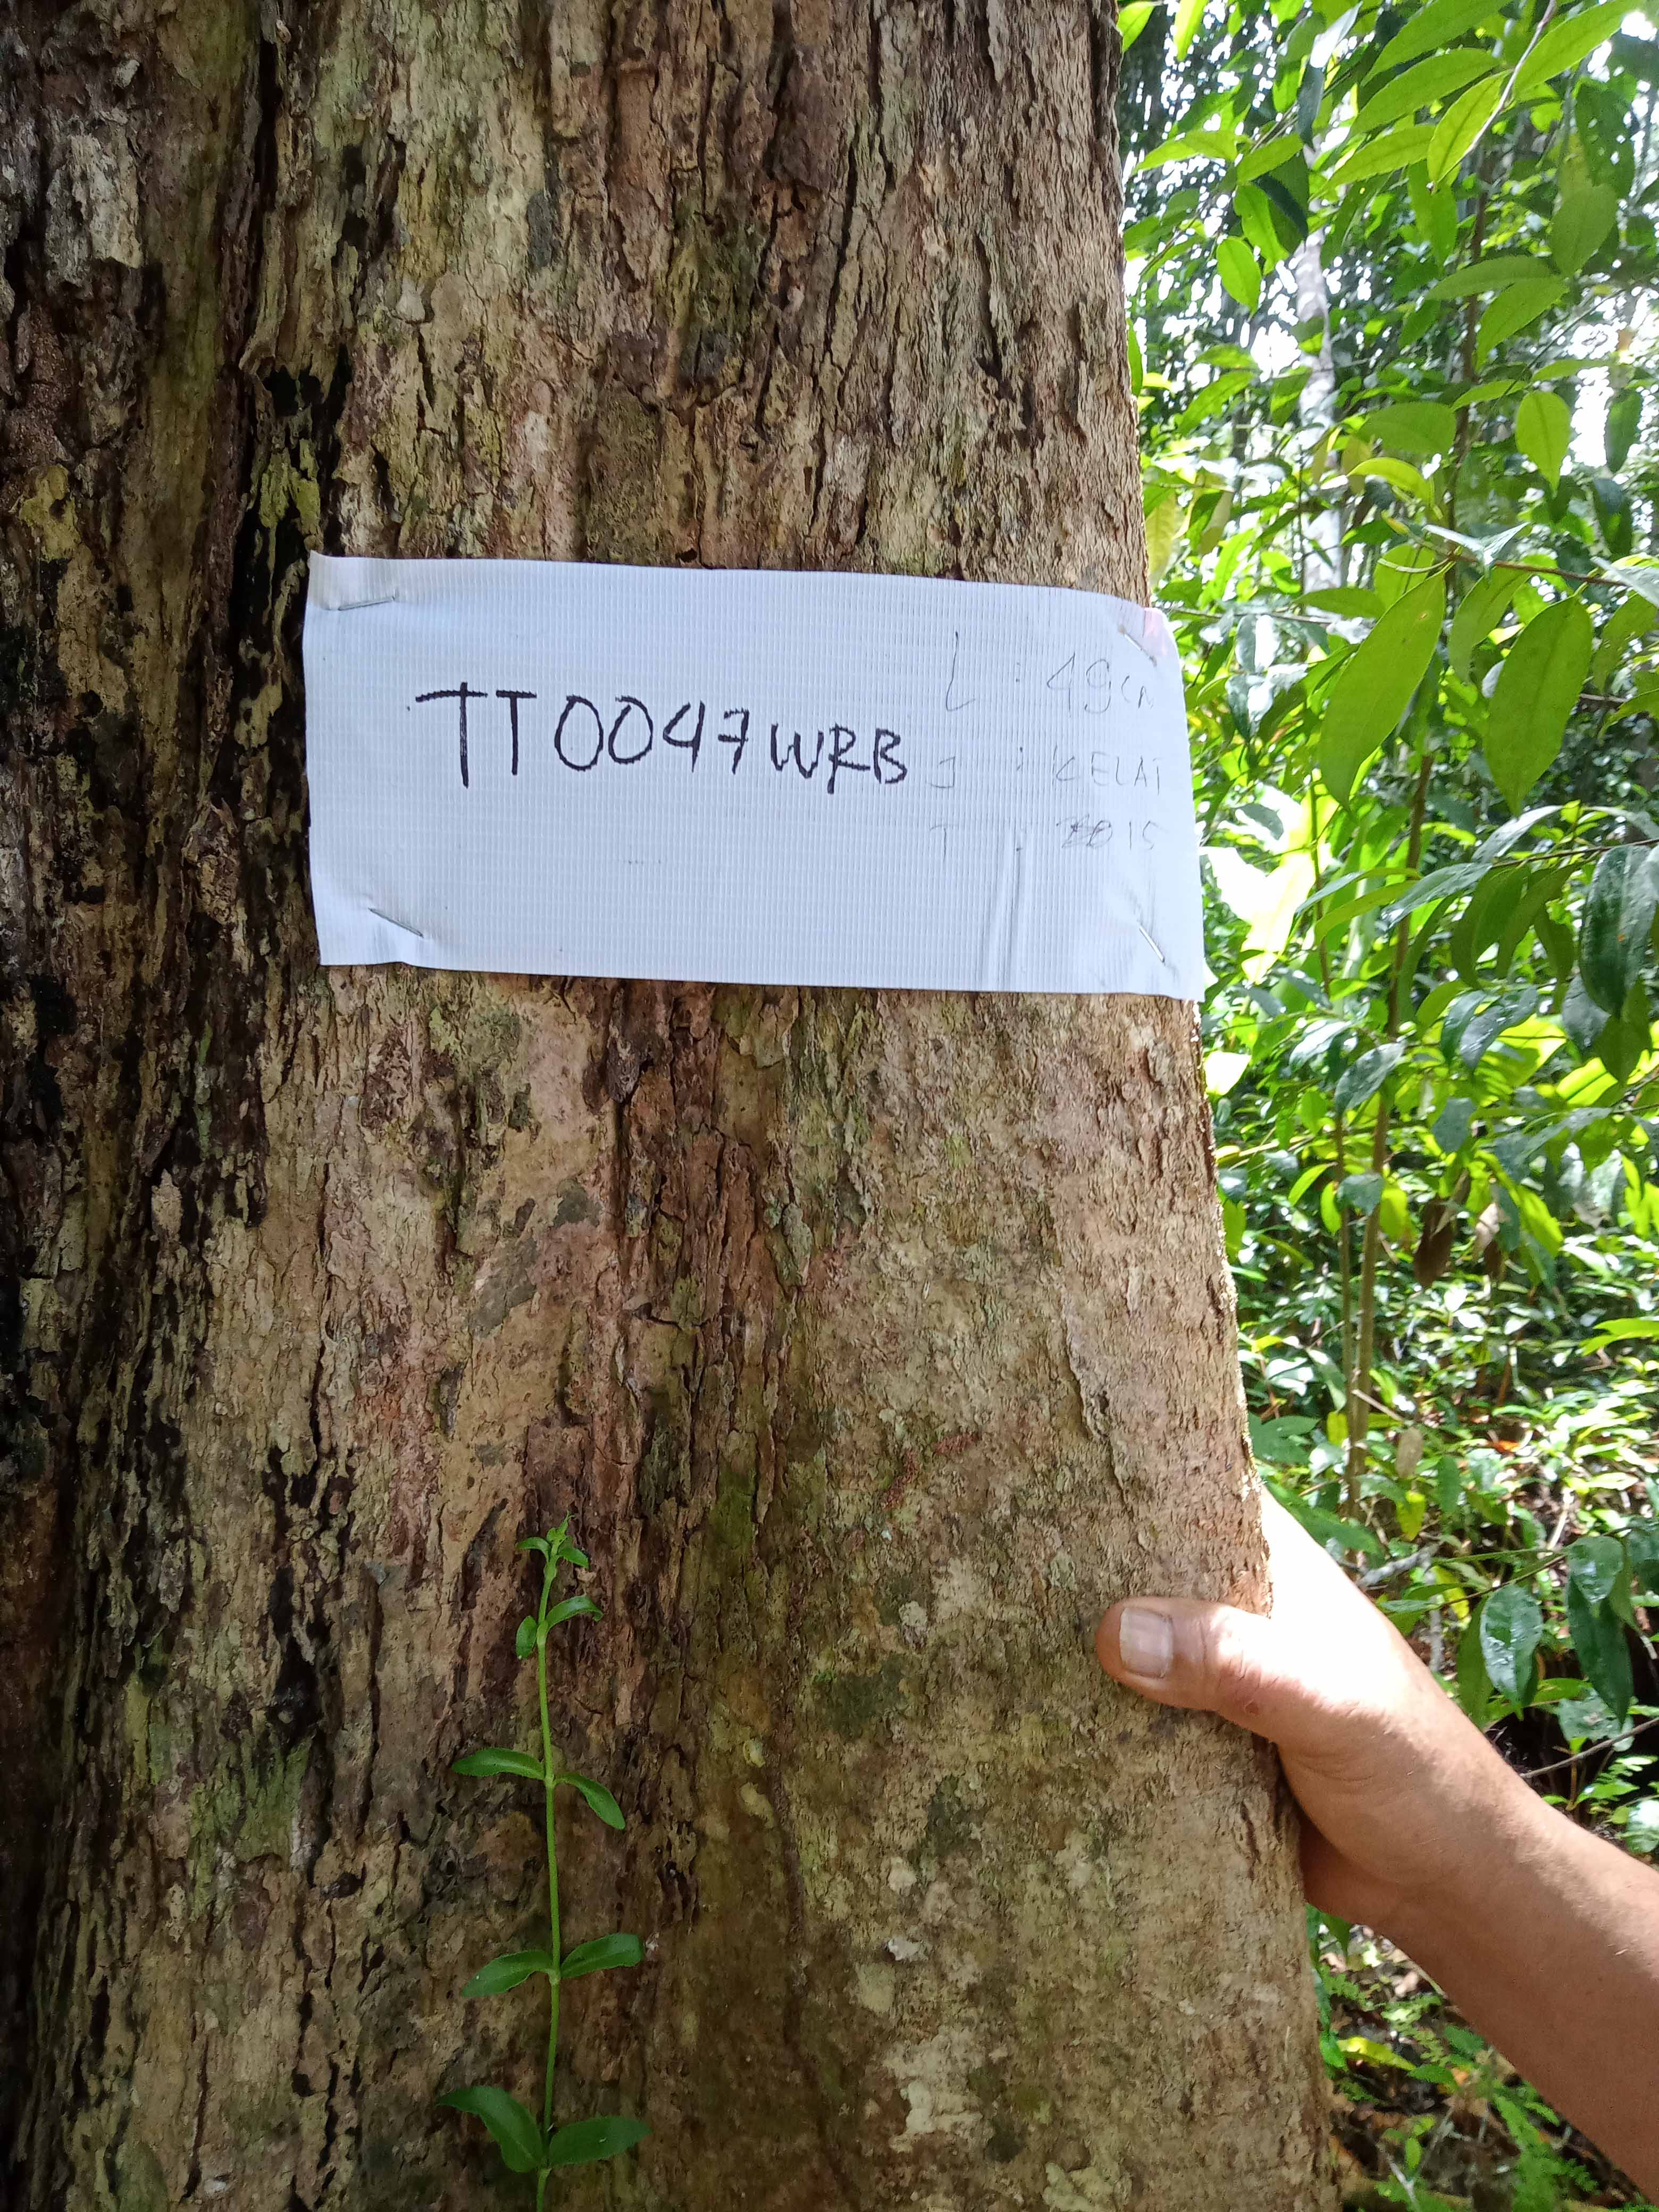 TT0047WRB
L : 49cm
J : KELAT
T : 15